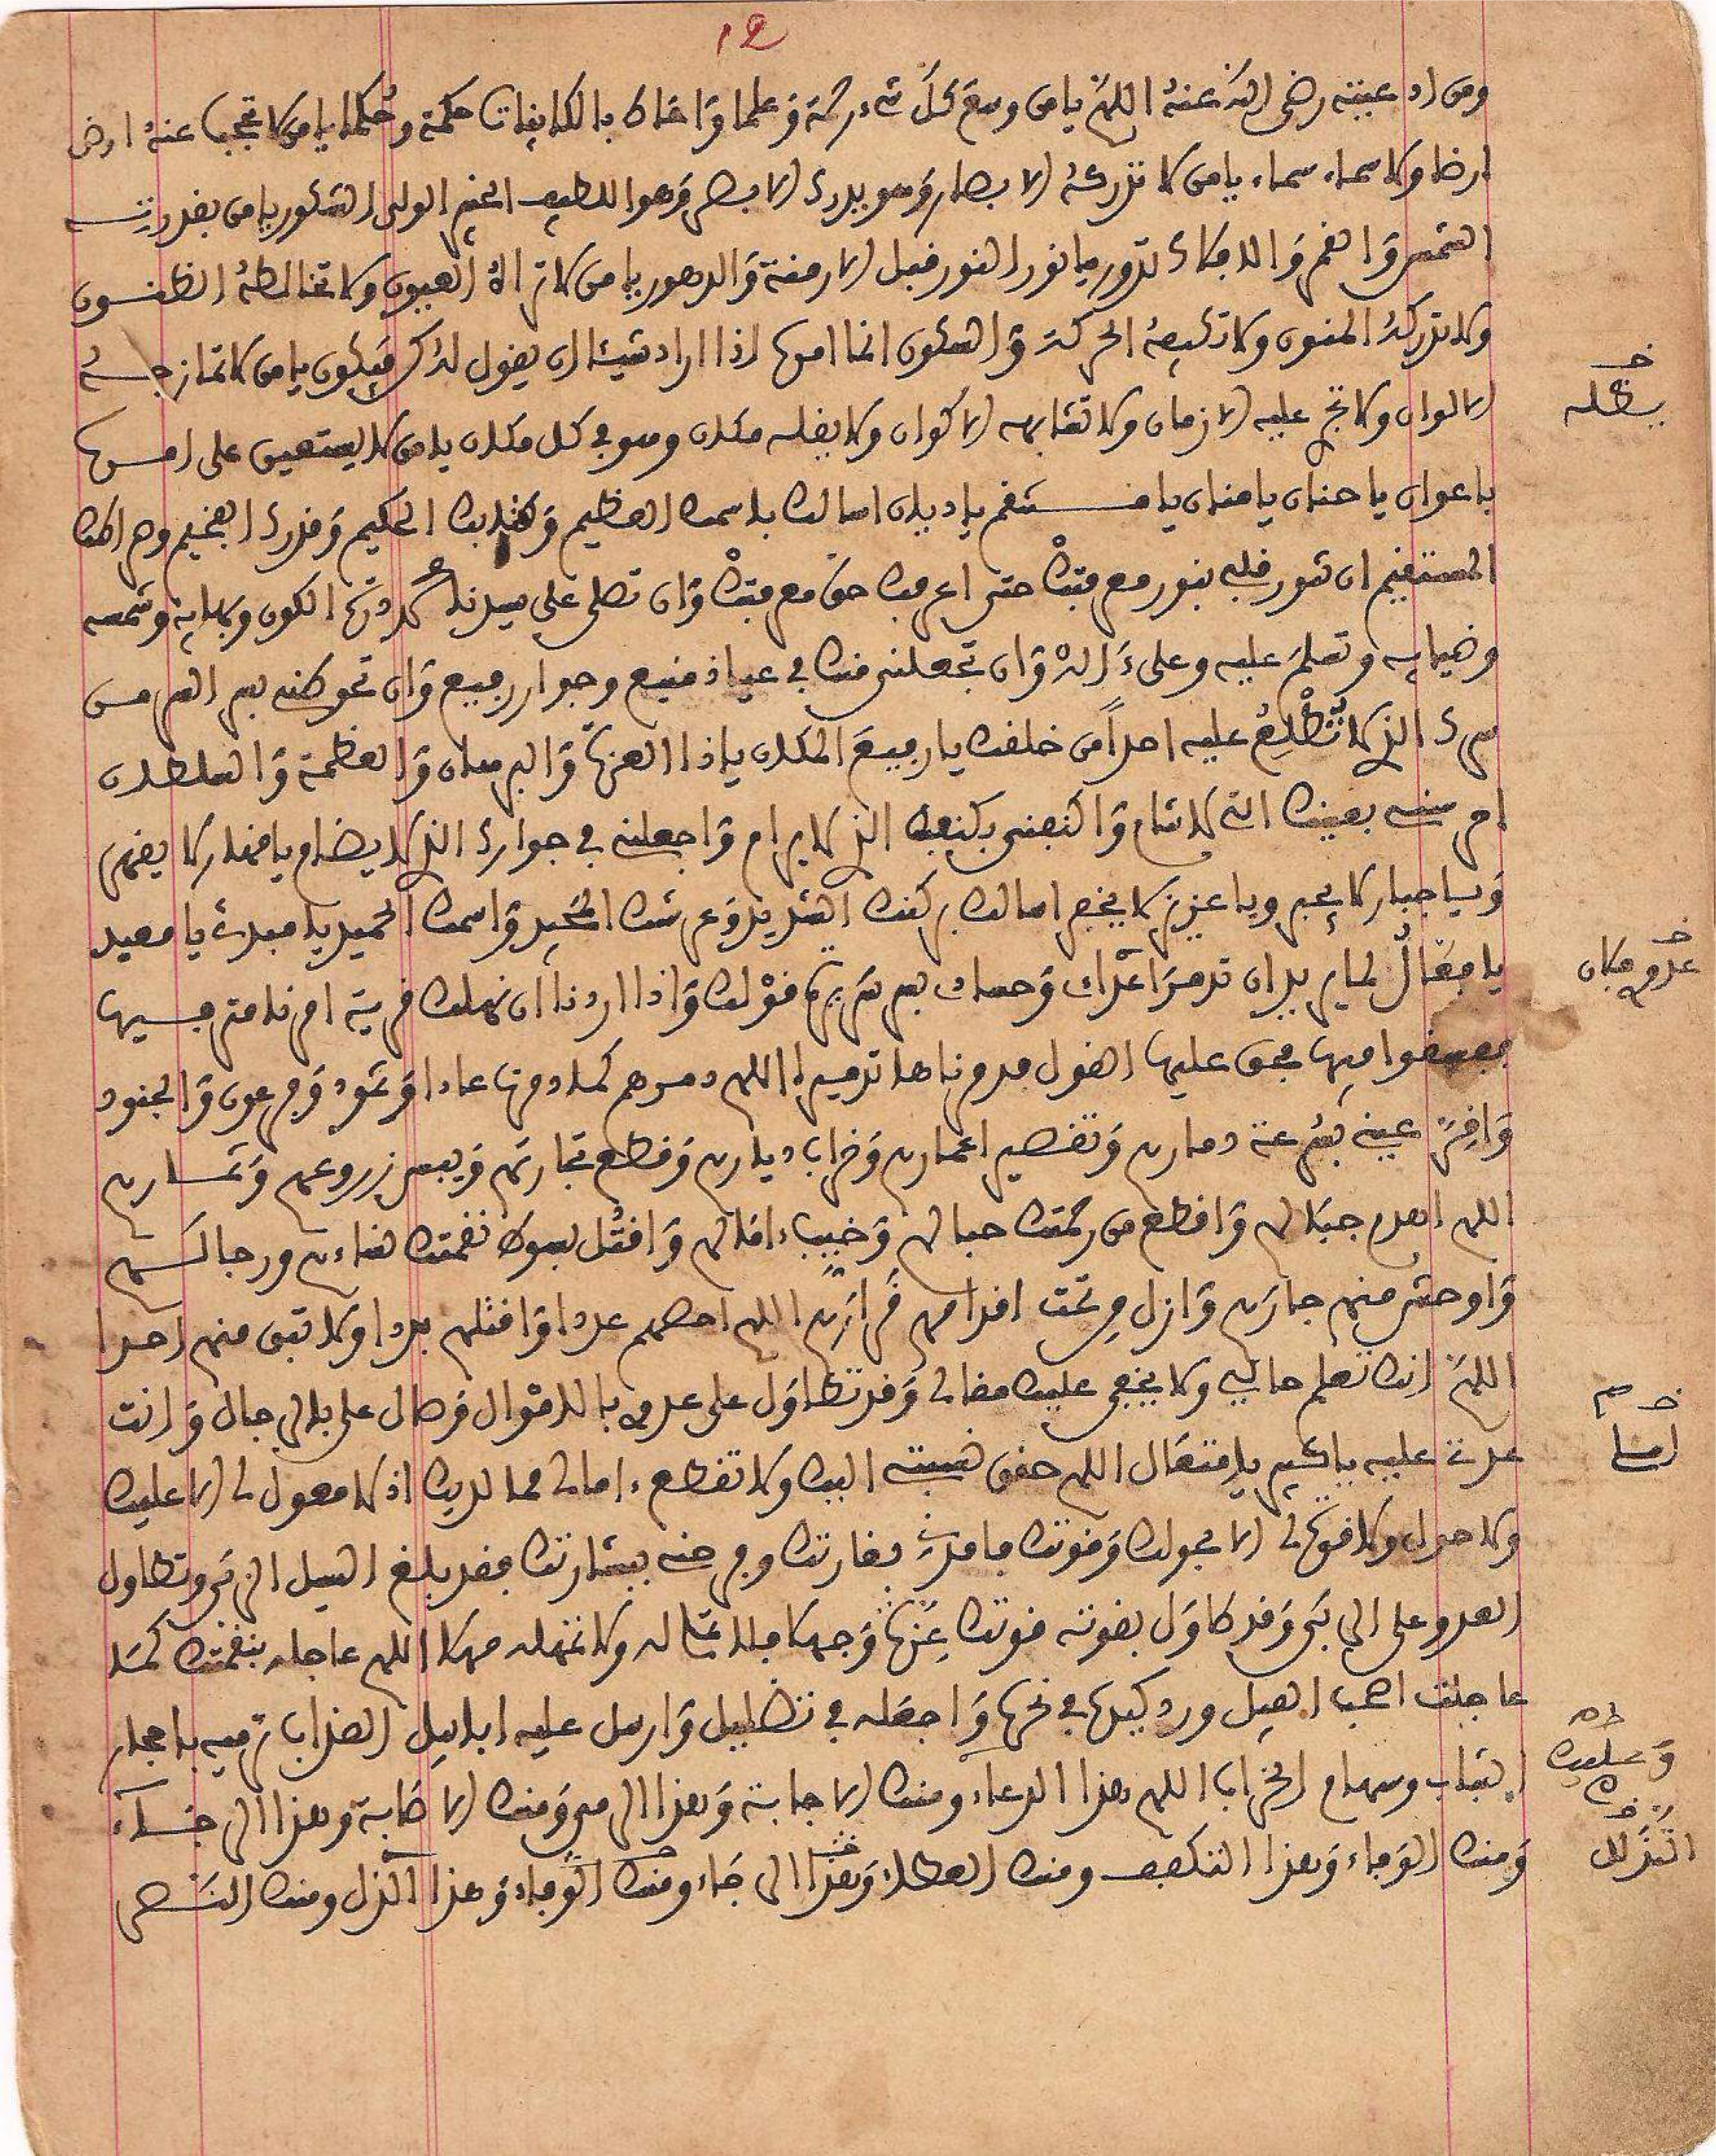 12
ومن ادعيته رضي الله عنه اللهم يا من وسع كل شيء رحمة وعلما واحاط بالكاينات حكمة وحكما يا من لا تحجب عنه ارض
ارضا ولا سماء سماء يا من لا تدركه الابصار وهو يدرك الابصر وهوا اللطيف الخبير الولي الشكور يا من بقدرته
الشمس والقمر والافلاك تدور يا نور النور قبل الازمنة والدهور يا من لا تراه العيون ولا تخالطه الظنون
ولا تدركه المنون ولا تكيفه الحركة والسكون انما امره اذا اراد شيئا ان يقول له كن فيكون يا من لا تمازجه
خ
يقله
الالوان ولا تجر عليه الازمان ولا تشابهه الاكوان ولا يقله مكان وهو في كل مكان يا من لا يستعين على امره
باعوان يا حنان يا منان يا منتقم يا ديان اسالك باسمك العظيم وكتابك الحكيم وقدرك الفخيم وصراطك
المستقيم ان تنور قلبي بنور معرفتك حتى اعرفك حق معرفتك وان تصلي على سيدنا محمد درة الكون وبهايه وشمسه
وضيايه وتسلم عليه وعلى ءاله وان تجعلني منك في عياذ منيع وجوار رفيع وان تحوطني بسر السر من
سرك الذي لا تطلع عليه احدا من خلقك يا رفيع المكان يا ذا العزة والبرهان والعظمة والسلطان
احرسني بعينك التي لا تنام واكنفني بكنفك الذي لا يرام واجعلني في جوارك الذي لا يضام يا قهار لا يقهر
ويا جبار لا يجبر ويا عزيز لا يخفر اسالك بركنك الشديد وعرشك المجيد واسمك الحميد يا مبدئ يا معيد
خ
عدو مكان
يا فعال لما يريد ان تدمر اعداء وحساد بسر سريرة قولك واذا اردنا ان نهلك قرية امرنا مترفيها
ففسقوا فيها فحق عليها القول فدمرناها تدميرا اللهم دمرهم كما دمرت عادا وثمود وفرعون والجنود
واقر عيني بسرعة دمارهم وتقصير اعمارهم وخراب ديارهم وقطع تجارتهم ويبس زروعهم وثمارهم
اللهم اهدم جبالهم واقطع من رحمتك حبالهم وخيب ءامالهم واقتل بسوط نقمتك نساءهم ورجالهم
واوحش منهم جارهم وازل من تحت اقدامهم قرارهم اللهم احصهم عددا واقتلهم بددا ولا تبق منهم احدا
اللهم انك تعلم حالي ولا يخفى عليك مقالي وقد تطاول على عدوي بالاموال وصال علي بالرجال وانت
عدتي عليه يا كبير يا متعال اللهم حقق نسبتي اليك ولا تقطع ءامالي مما لديك اذ لا معول لي الا عليك
ولا حول ولا قوة لي الا بحولك وقوتك فامدن بغارتك وفرحني ببشارتك فقد بلغ السيل الزبى وتطاول
العدو علي الى بي وقد طاول بقوته قوتك عزة وجهلا فلا تمهله ولا تمهله مهلا اللهم عاجله بنقمتك كما
عاجلت اصحب الفيل ورد كيدها في نحرها واجعله في تضليل وارسل عليه ابابيل العذاب ترميه باحجار
التباب وسهام الخراب اللهم هذا الدعاء ومنك الاجابة وهذا الرمي ومنك الاصابة وهذا الرجاء
ومنك الوفاء وهذا التكفف ومنك العطاء وهذا الرجاء ومنك الوفاء وهذا الذل ومنك النصر
وعليك
التذلل